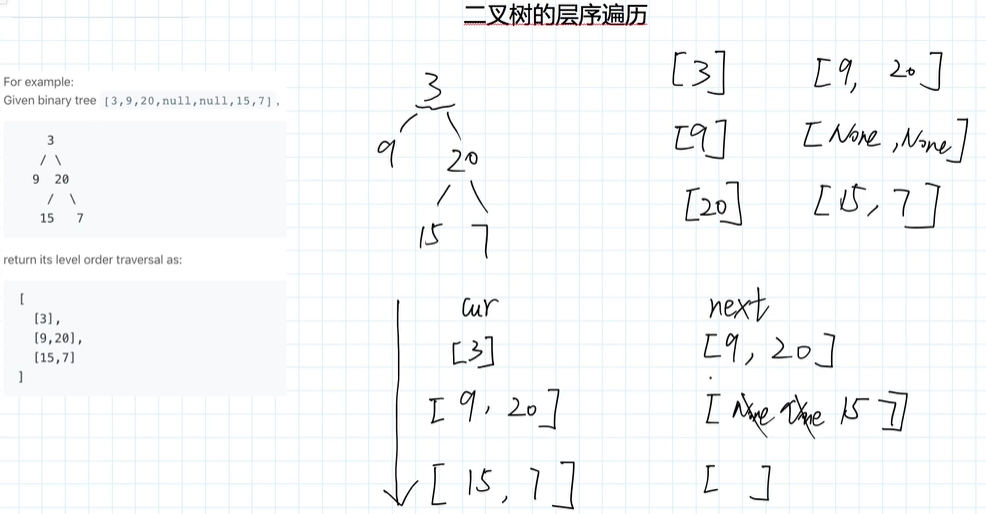 二叉树的层序遍历
For example:
Given binary tree [3,9,20,null,null,15,7],
3
/ \
9 20
/ \
15 7
return its level order traversal as:
[
[3],
[9,20],
[15,7]
]
3
9 20
15 7
[3] [9, 20]
[9] [None, None]
[20] [15, 7]
cur next
[3] [9, 20]
[9, 20] [None None 15 7]
[15, 7] [ ]